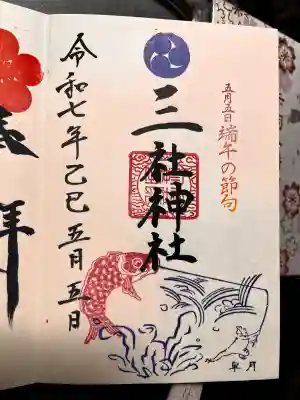 五月五日 端午の節句
三社神社
令和七年乙巳五月五日
皐月
拝